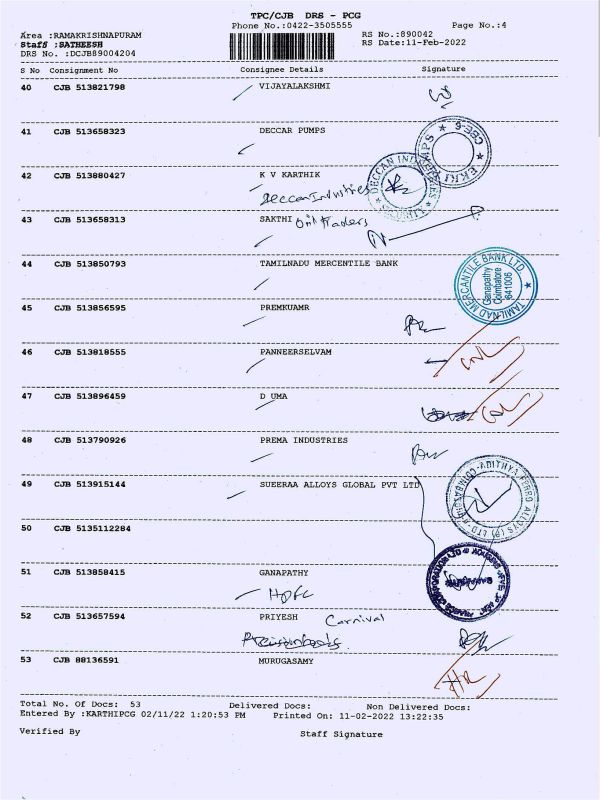 TPC/CJB DRS - PCG
Phone No.:0422-3505555 Page No.:4
Area :RAMAKRISHNAPURAM RS No.:890042
Staff :SATHEESH RS Date:11-Feb-2022
DRS No. :DCJB89004204
S No Consignment No Consignee Details Signature
40 CJB 513821798 VIJAYALAKSHMI
41 CJB 513658323 DECCAR PUMPS
42 CJB 513880427 K V KARTHIK
Deccan Industries
DECCAN INDUSTRIES
43 CJB 513658313 SAKTHI
44 CJB 513850793 TAMILNADU MERCENTILE BANK
TAMILNAD MERCANTILE BANK LTD
Ganapathy
Coimbatore
641006
45 CJB 513856595 PREMKUAMR
46 CJB 513818555 PANNEERSELVAM
47 CJB 513896459 D UMA
48 CJB 513790926 PREMA INDUSTRIES
49 CJB 513915144 SUEERAA ALLOYS GLOBAL PVT LTD
ADITHYA FERRO ALLOYS (P) LTD
50 CJB 5135112284
51 CJB 513858415 GANAPATHY
HDFC
52 CJB 513657594 PRIYESH Carnival
53 CJB 88136591 MURUGASAMY
Total No. Of Docs: 53 Delivered Docs: Non Delivered Docs:
Entered By :KARTHIPCG 02/11/22 1:20:53 PM Printed On: 11-02-2022 13:22:35
Verified By Staff Signature